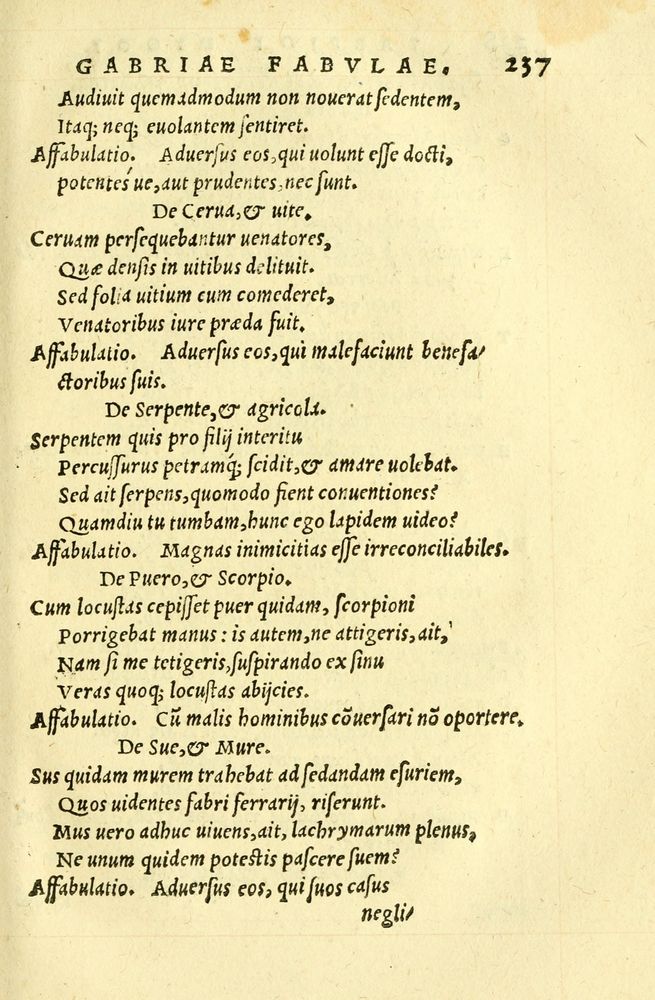 GABRIAE FABVLAE. 237
Audiuit quemadmodum non nouerat sedentem,
Itaq; neq; euolantem sentiret.
Affabulatio. Aduersus eos, qui uolunt esse docti,
potentés ue, aut prudentes, nec sunt.
De Cerua, & uite.
Ceruam persequebantur uenatores,
Quæ densis in uitibus delituit.
Sed folia uitium cum comederet,
Venatoribus iure præda fuit.
Affabulatio. Aduersus eos, qui malefaciunt benefa/
ctoribus suis.
De Serpente, & agricola.
Serpentem quis pro filij interitu
Percussurus petramq́; scidit, & amare uolebat.
Sed ait serpens, quomodo fient conuentiones?
Quamdiu tu tumbam, hunc ego lapidem uideo?
Affabulatio. Magnas inimicitias esse irreconciliabiles.
De Puero, & Scorpio.
Cum locustas cepisset puer quidam, scorpioni
Porrigebat manus: is autem, ne attigeris, ait,
Nam si me tetigeris, suspirando ex sinu
Veras quoq; locustas abijcies.
Affabulatio. Cū malis hominibus cōuersari nō oportere.
De Sue, & Mure.
Sus quidam murem trahebat ad sedandam esuriem,
Quos uidentes fabri ferrarij, riserunt.
Mus uero adhuc uiuens, ait, lachrymarum plenus,
Ne unum quidem potestis pascere suem?
Affabulatio. Aduersus eos, qui suos casus
negli/